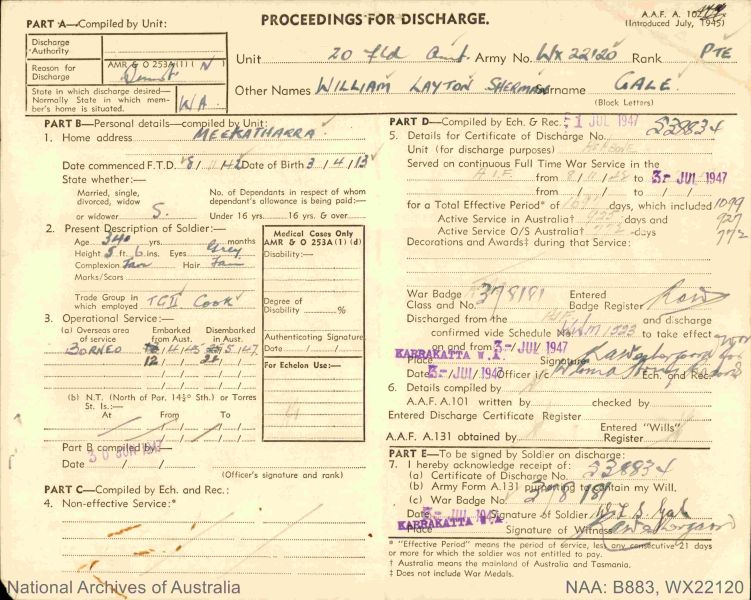 PART A—Compiled by Unit:
PROCEEDINGS FOR DISCHARGE.
A.A.F. A. 10
(Introduced July, 1945)
Discharge Authority
Reason for Discharge
AMR & O 253A(1) ( N )
Demob
State in which discharge desired—Normally State in which member's home is situated.
WA
Unit 20 fld Army No. WX 22120 Rank PTE
Other Names WILLIAM LAYTON SHERMAN Surname GALE
(Block Letters)
PART B—Personal details—compiled by Unit:
1. Home address MEEKATHARRA
Date commenced F.T.D. 8/11/42 Date of Birth 3/4/13
State whether:—
Married, single, divorced, widow or widower S.
No. of Dependants in respect of whom dependant's allowance is being paid:—
Under 16 yrs. 16 yrs. & over
2. Present Description of Soldier:—
Age 34 yrs. months
Height 5 ft. 6 ins. Eyes Grey
Complexion Fair Hair Fair
Marks/Scars
Trade Group in which employed TG II Cook
Medical Cases Only
AMR & O 253A(1) (d)
Disability:—
Degree of Disability %
Authenticating Signature
Date / /
For Echelon Use:—
3. Operational Service:—
(a) Overseas area of service
Embarked from Aust.
Disembarked in Aust.
BORNEO 4/45 5/47
12
(b) N.T. (North of Par. 14½° Sth.) or Torres St. Is.:—
At From To
Part B compiled by
30 JUN 1947
Date / /
(Officer's signature and rank)
PART C—Compiled by Ech. and Rec.:
4. Non-effective Service:*
PART D—Compiled by Ech. & Rec.: 1 JUL 1947
5. Details for Certificate of Discharge No. 238834
Unit (for discharge purposes)
Served on continuous Full Time War Service in the
A.I.F. from 8/11/42 to 3- JUL 1947
from / / to / /
for a Total Effective Period* of days, which included 1099
Active Service in Australia† days and 927
Active Service O/S Australia† 772 days 772
Decorations and Awards‡ during that Service:
War Badge Class and No. 378181 Entered Badge Register
Discharged from the AIF and discharge
confirmed vide Schedule No. 1523 to take effect
on and from 3- JUL 1947
KARRAKATTA W.A.
Place Signature
Date 3- JUL 1947 Officer i/c Ech. and Rec.
6. Details compiled by
A.A.F. A.101 written by checked by
Entered Discharge Certificate Register
A.A.F. A.131 obtained by Entered "Wills" Register
PART E—To be signed by Soldier on discharge:
7. I hereby acknowledge receipt of:
(a) Certificate of Discharge No. 238834
(b) Army Form A.131 purporting to contain my Will.
(c) War Badge No. 378181
Date 3- JUL 1947 Signature of Soldier W L S Gale
KARRAKATTA W.A.
Place Signature of Witness
* "Effective Period" means the period of service, less any consecutive 21 days or more for which the soldier was not entitled to pay.
† Australia means the mainland of Australia and Tasmania.
‡ Does not include War Medals.
National Archives of Australia
NAA: B883, WX22120